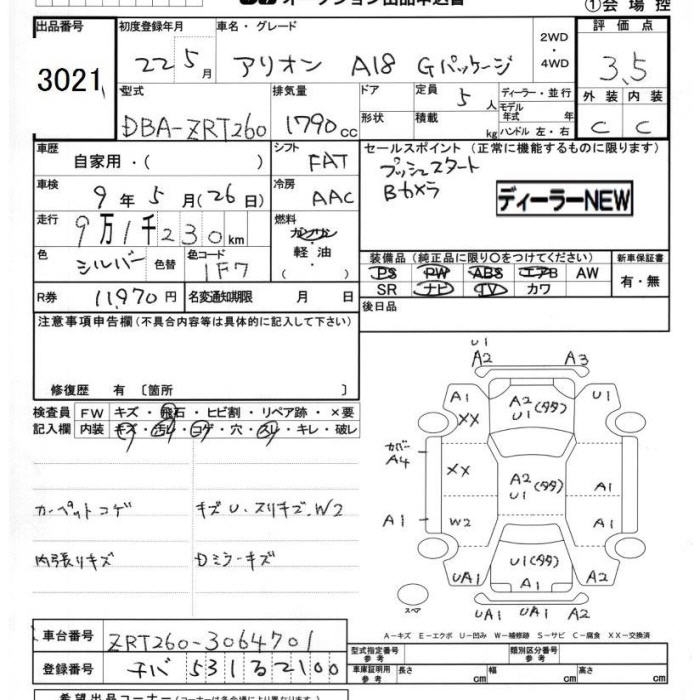 オークション出品申込書
①会場控
出品番号
3021
初度登録年月
22 5月
車名・グレード
アリオン A18 Gパッケージ
2WD・4WD
評価点
3.5
外装 内装
C C
型式
DBA-ZRT260
排気量
1790cc
ドア
形状
定員 5人
積載 kg
ディーラー・並行
モデル年式 年
ハンドル 左・右
車歴 自家用・( )
シフト FAT
車検 9年5月(26日)
冷房 AAC
走行 9万1千230km
燃料 ガソリン・軽油 ( )
色 シルバー 色替
色コード 1F7
R券 11,970円
名変通知期限 月 日
セールスポイント (正常に機能するものに限ります)
プッシュスタート
Bカメラ
ディーラーNEW
装備品 (純正品に限り○をつけてください)
新車保証書
PS PW ABS エアB AW
SR ナビ TV カワ
有・無
後日品
注意事項申告欄(不具合内容等は具体的に記入して下さい)
修復歴 有 〔箇所 〕
検査員記入欄
FW キズ・飛石・ヒビ割・リペア跡・×要
内装 キズ・汚レ・コゲ・穴・スレ・キレ・破レ
カーペットコゲ
キズU・スリキズ・W2
内張りキズ
Dミラーキズ
U1
A2 A3
A1 A2 U1
XX U1(タタ)
カバー A4
XX A2(タタ) A1
U1
A1 W2 A1
U1(タタ)
UA1 A1 A2
スペア
UA1 UA1 A2
A−キズ E−エクボ U−凹み W−補修跡 S−サビ C−腐食 XX−交換済
車台番号 ZRT260-3064701
登録番号 チバ 531 る 2100
型式指定番号 参考
類別区分番号 参考
車庫証明用 参考
長さ cm 幅 cm 高さ cm
希望出品コーナー